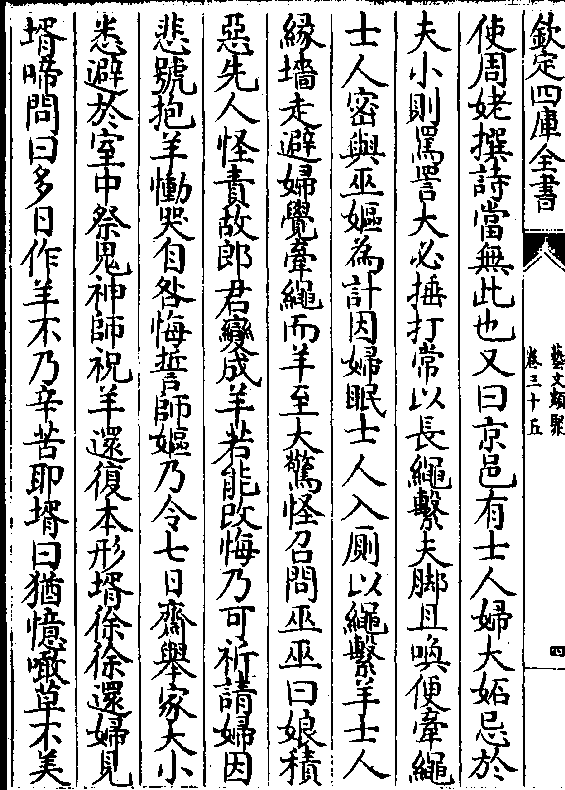 欽定四庫全書
藝文類聚
卷三十五
四
使周姥撰詩當無此也又曰京邑有士人婦大妬忌於
夫小則罵詈大必捶打常以長繩繫夫脚且喚便牽繩
士人密與巫嫗為計因婦眠士人入厠以繩繫羊士人
縁墻走避婦覺牽繩而羊至大驚怪召問巫巫曰娘積
惡先人怪責故郎君變成羊若能改悔乃可祈請婦因
悲號抱羊慟哭自咎悔誓師嫗乃令七日齋舉家大小
悉避於室中祭鬼神師祝羊還復本形壻徐徐還婦見
壻啼問曰多日作羊不乃辛苦耶壻曰猶憶噉草不美